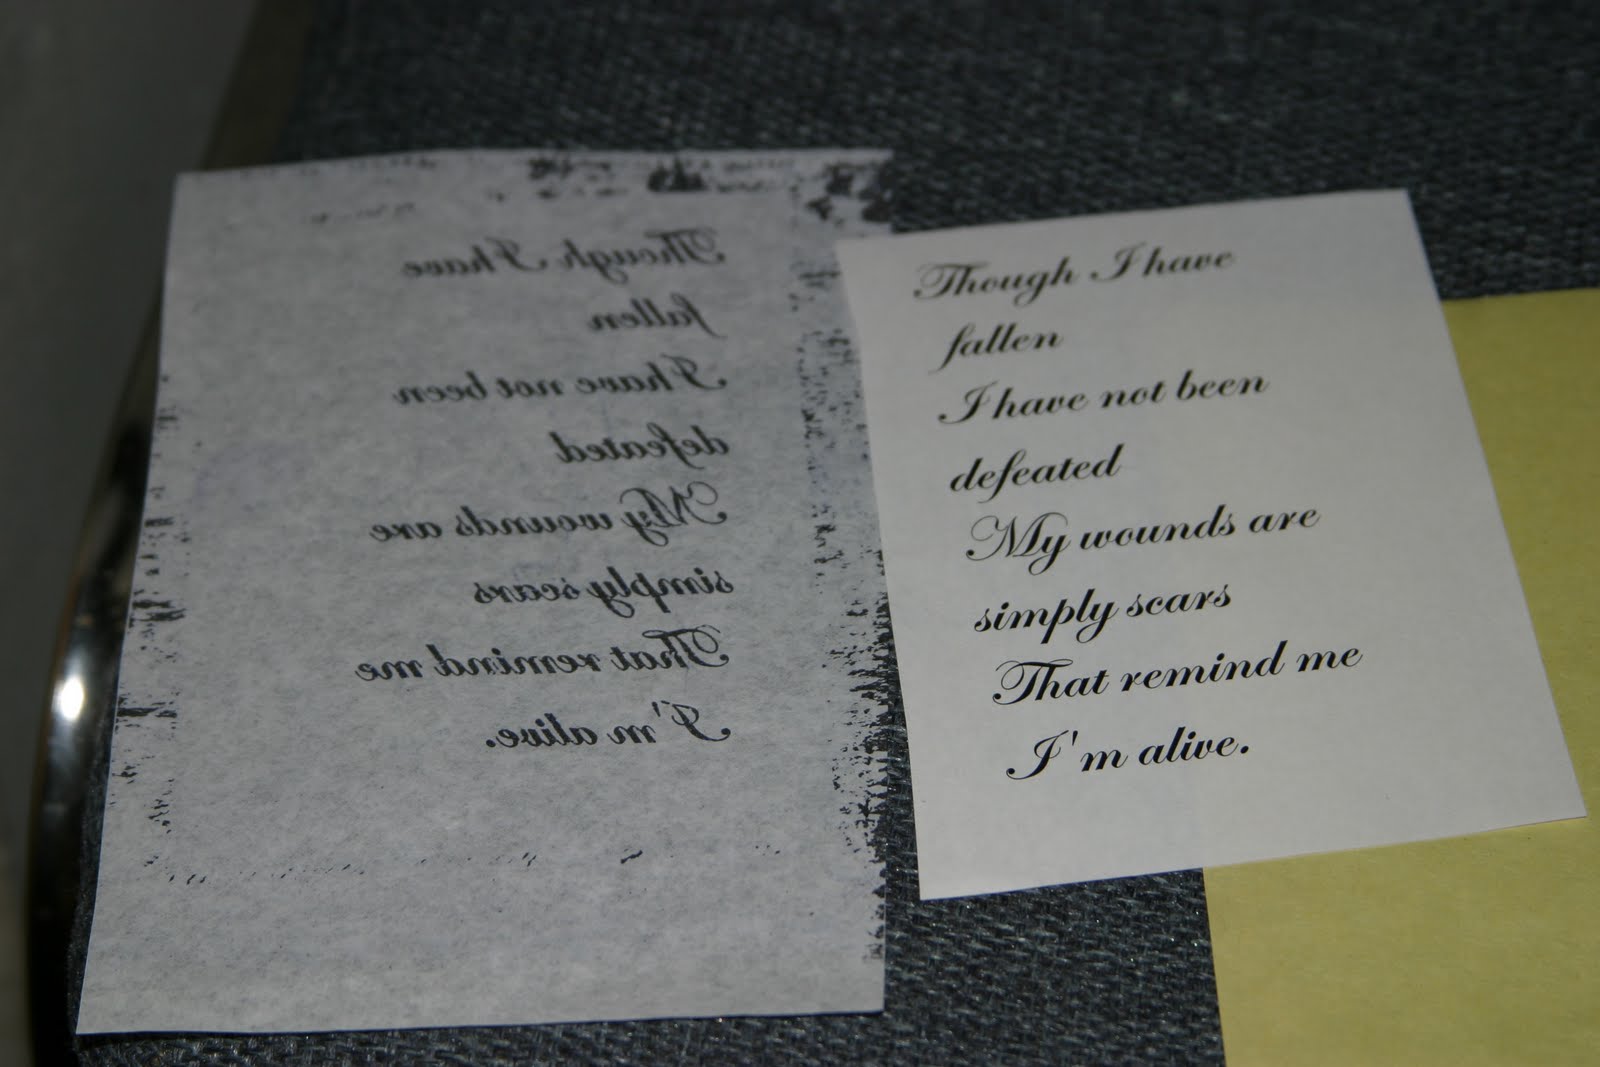 Though I have
fallen
I have not been
defeated
My wounds are
simply scars
That remind me
I'm alive.
Though I have
fallen
I have not been
defeated
My wounds are
simply scars
That remind me
I'm alive.